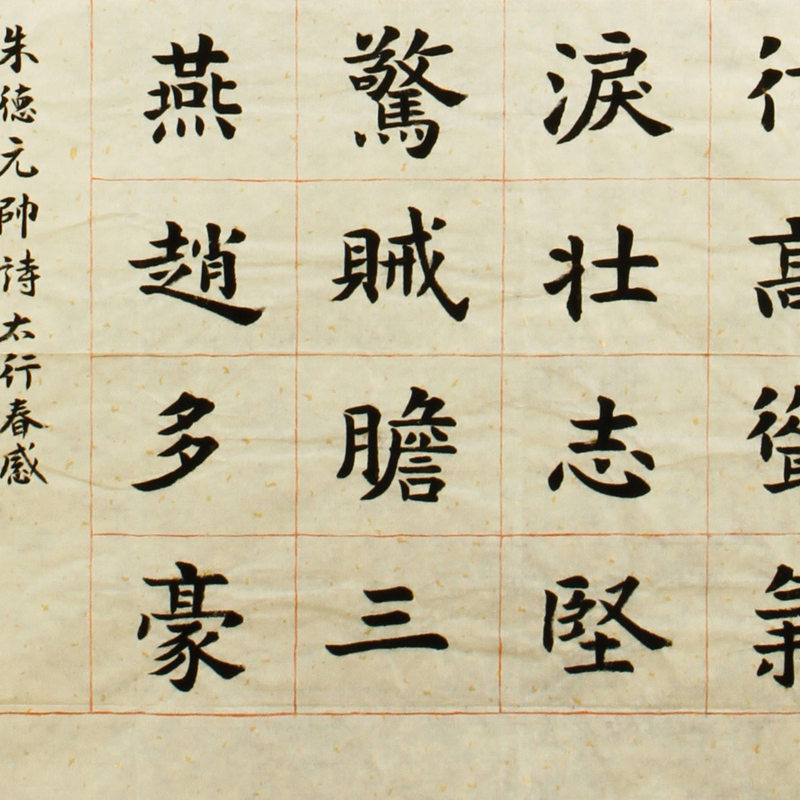 行高聳氣
淚壯志堅
驚賊膽三
燕趙多豪
朱德元帥詩太行春感